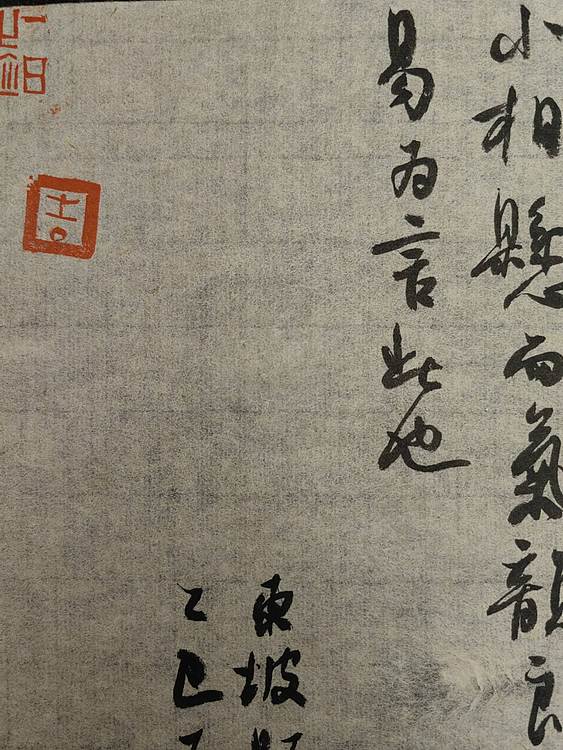 小相懸而氣韻良
易為言此也
東坡
乙巳
周